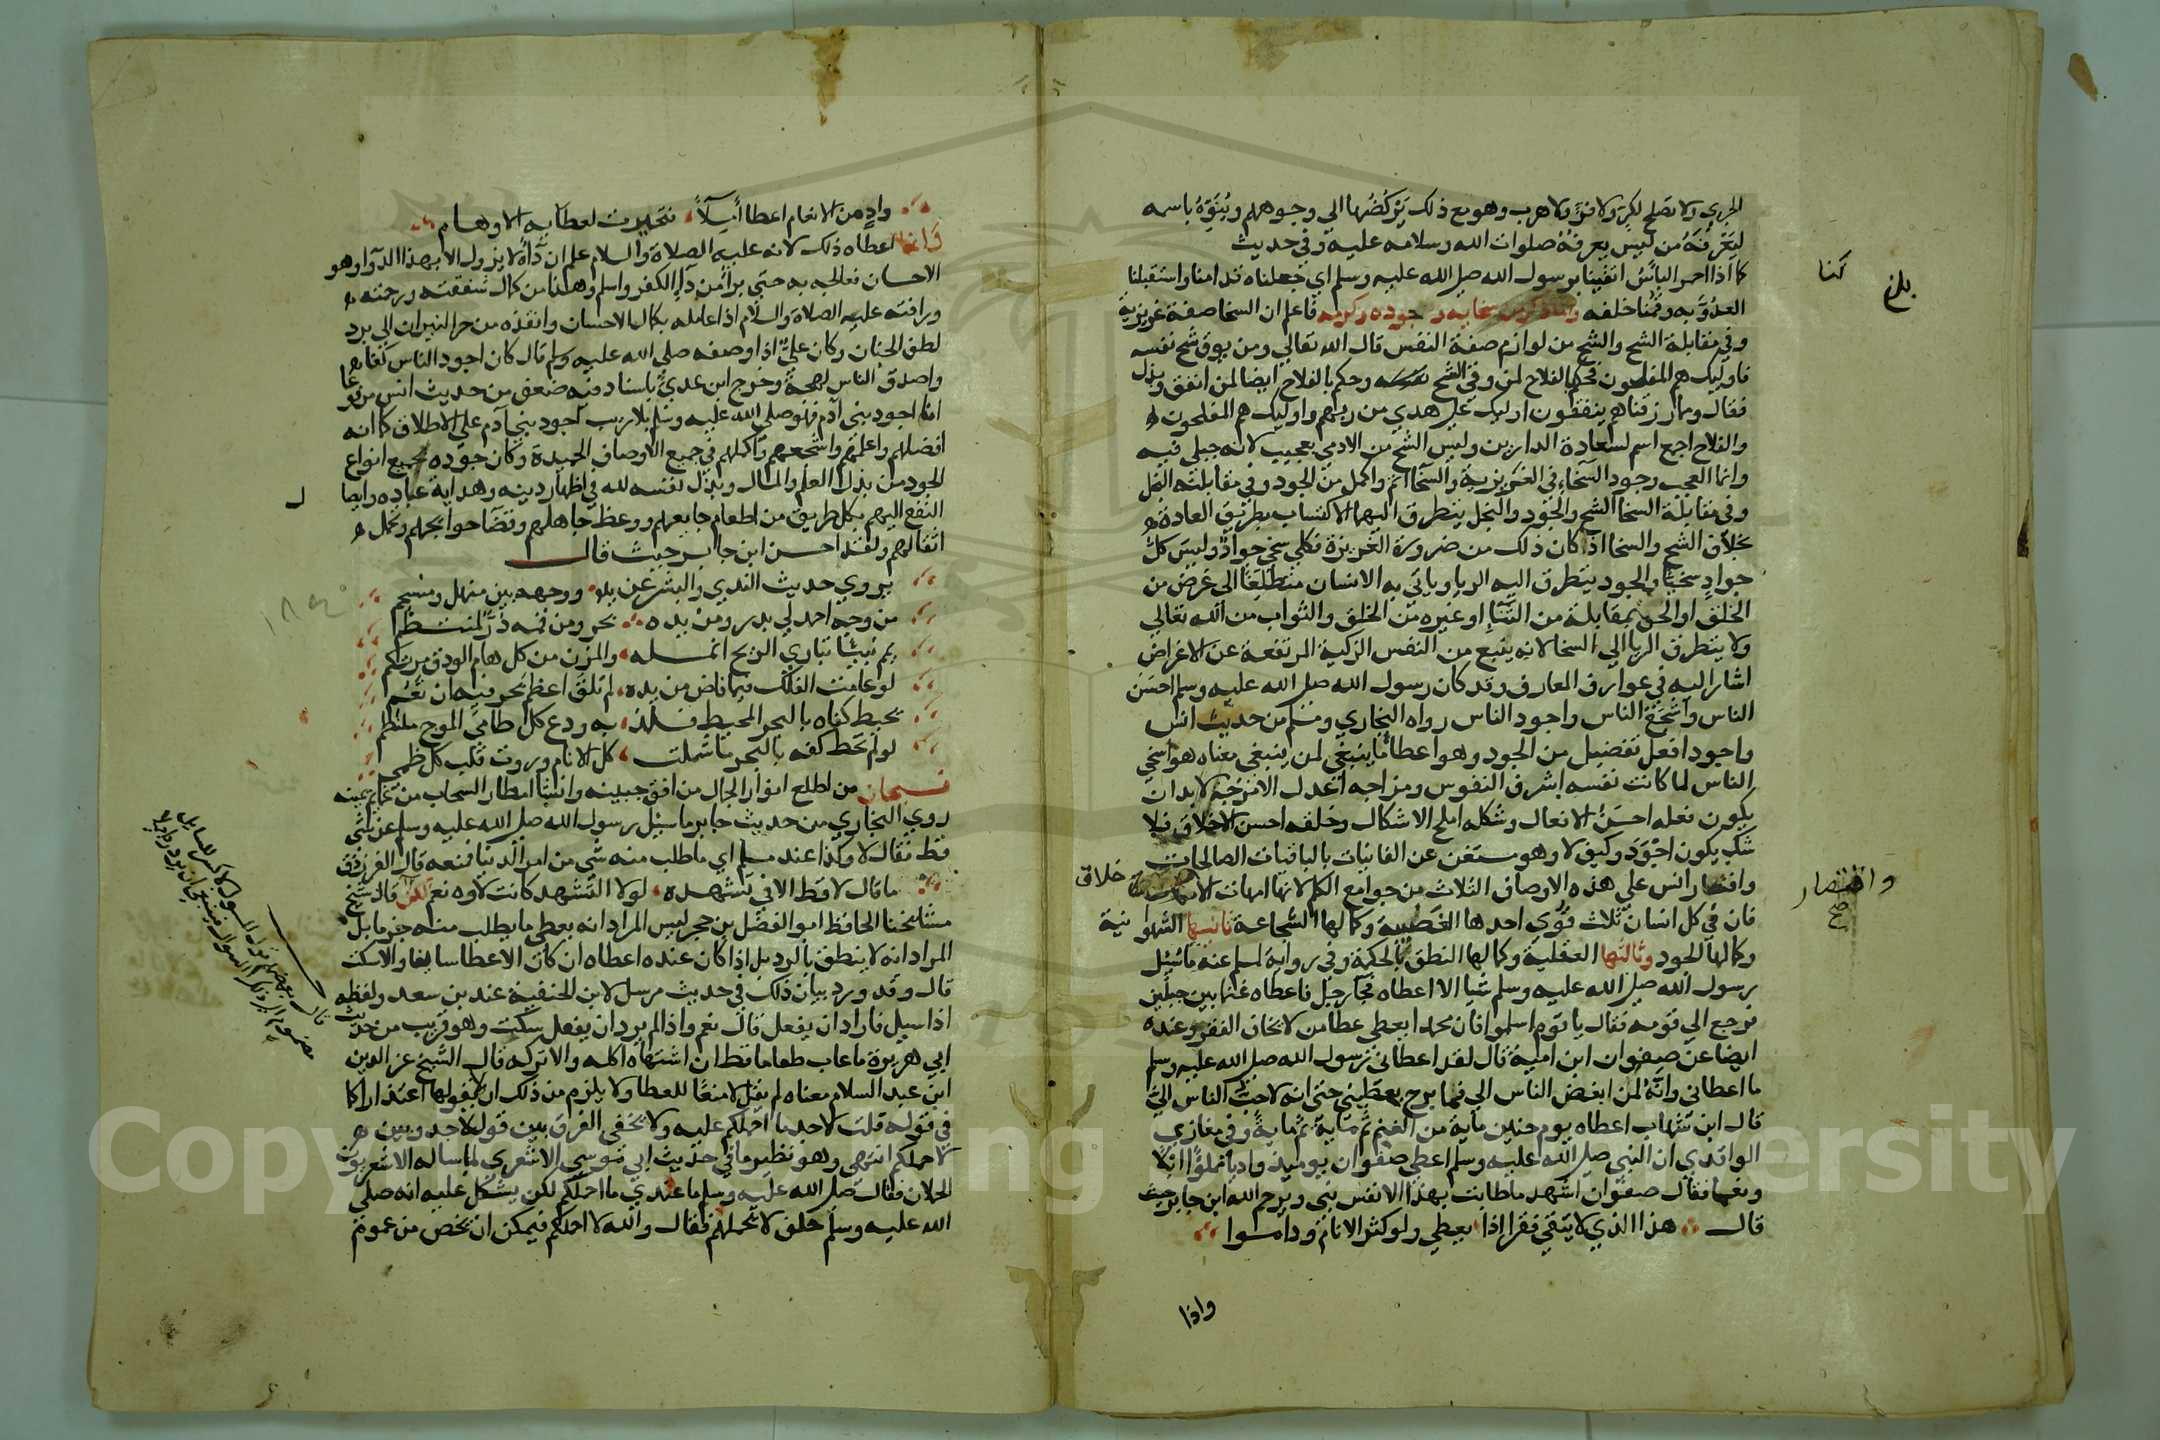 الجري ولا تصلح لكر ولا فر ولا هرب وهو مع ذلك يركضها الي وجوههم وينوه باسمه
ليعرفه من ليس يعرفه صلوات الله وسلامه عليه وفي حديث
كنا
بلغ
كنا اذا احمر البأس اتقينا برسول الله صلى الله عليه وسلم اي جعلناه قدامنا واستقبلنا
العدو به وقمنا خلفه واما ذكر سخايه وجوده وكرمه فاعلم ان السخا صفة غريزية
وفي مقابلة الشح والشح من لوازم صفة النفس قال الله تعالي ومن يوق شح نفسه
فاوليك هم المفلحون فحكم بالفلاح لمن وقي الشح وحكم بالفلاح ايضا لمن انفق وبذل
فقال ومما رزقناهم ينفقون اوليك علي هدي من ربهم واوليك هم المفلحون
والفلاح اجمع اسم لسعادة الدارين وليس الشح من الادمي بعجيب لانه جبلي فيه
وانما العجب وجود السخاء في الغريزية والسخا اتم واكمل من الجود وفي مقابلته البخل
وفي مقابلة السخا الشح والجود والبخل يتطرق اليهما الاكتساب بطريق العادة
بخلاف الشح والسخا اذ كان ذلك من ضرورة الغريزة فكل سخي جواد وليس كل
جواد سخيا والجود يتطرق اليه الريا وياتي به الانسان متطلعا الى غرض من
الخلق او الحق بمقابلة من الثناء او غيره من الخلق والثواب من الله تعالي
ولا يتطرق الريا الي السخا لانه ينبع من النفس الزكية المرتفعة عن الاغراض
اشار اليه في عوارف المعارف وقد كان رسول الله صلى الله عليه وسلم احسن
الناس واشجع الناس واجود الناس رواه البخاري ومسلم من حديث انس
واجود افعل تفضيل من الجود وهو اعطا ما ينبغي لمن ينبغي معناه هو اسخي
الناس لما كانت نفسه اشرف النفوس ومزاجه اعدل الامزجة لابد ان
يكون فعله احسن الافعال وشكله املح الاشكال وخلقه احسن الاخلاق فلا
شك يكون اجود وكيف لا وهو مستغن عن الفانيات بالباقيات الصالحات
واقتصار صح
واقتصار انس علي هذه الاوصاف الثلاث من جوامع الكلم لانها امهات الاخلاق
فان في كل انسان ثلاث قوي احدها الغضبية وكمالها الشجاعة ثانيها الشهوانية
وكمالها الجود وثالثها العقلية وكمالها النطق بالحكمة وفي رواية لمسلم عنه ما سئل
رسول الله صلى الله عليه وسلم شيا الا اعطاه فجا رجل فاعطاه غنما بين جبلين
فرجع الي قومه فقال يا قوم اسلموا فان محمدا يعطي عطا من لا يخاف الفقر وعنده
ايضا عن صفوان ابن امية قال لقد اعطاني رسول الله صلى الله عليه وسلم
ما اعطاني وانه لمن ابغض الناس الي فما برح يعطيني حتى انه لاحب الناس الي
قال ابن شهاب اعطاه يوم حنين ماية من الغنم ثم ماية ثم ماية وفي مغازي
الواقدي ان النبي صلى الله عليه وسلم اعطي صفوان يوميذ واديا مملوا ابلا
ونعما فقال صفوان اشهد ما طابت بهذا الا نفس نبي ويرحم الله ابن جابر حيث
قال هذا الذي لا يتقي فقرا اذا يعطي ولو كثر الانام وداموا
واذا
واد من الانعام اعطا آملا فتحيرت لعطايه الاوهام
وانما اعطاه ذلك لانه عليه الصلاة والسلام علم ان داه لا يزول الا بهذا الدوا وهو
الاحسان فعالجه به حتي برا من داء الكفر واسلم وهذا من كمال شفقته ورحمته
ورافته عليه الصلاة والسلام اذ عامله بكمال الاحسان وانقذه من حر النيران الي برد
لطف الجنان وكان علي اذا وصفه صلى الله عليه وسلم قال كان اجود الناس كفا
واصدق الناس لهجة وخرج ابن عدي باسناد فيه ضعف من حديث انس مرفوعا
انا اجود بني آدم فهو صلى الله عليه وسلم بلا ريب اجود بني آدم علي الاطلاق كما انه
افضلهم واعلمهم واشجعهم واكملهم في جميع الاوصاف الحميدة وكان جوده بجميع انواع
الجود من بذل العلم والمال وبذل نفسه لله في اظهار دينه وهداية عباده وايصا
ل
النفع اليهم بكل طريق من اطعام جايعهم ووعظ جاهلهم وقضا حوايجهم وتحمل
اثقالهم ولقد احسن ابن جابر حيث قال
يروي حديث الندي والبشر عن يده ووجهه بين منهل ومنسجم
من وجه احمد لي بدر ومن يده بحر ومن فمه در لمنتظم
يمم نبيا تباري الريح انمله والمزن من كل هامي الودق مرتكم
لو عامت الفلك فيما فاض من يده لم تلق اعظم بحر فيه ان تعم
تحيط كفاه بالبحر المحيط فلذ به ودع كل طامي الموج ملتطم
لو لم تحط كفه بالبحر ما شملت كل الانام وروت قلب كل ظمي
فسبحان من اطلع انوار الجمال من افق جبينه وانشا امطار السحاب من غمايم يمينه
روي البخاري من حديث جابر ما سيل رسول الله صلى الله عليه وسلم عن شي
قط فقال لا وكذا عند مسلم اي ما طلب منه شي من امر الدنيا فمنعه قال الفرزدق
ما قال لا قط الا في تشهده لولا التشهد كانت لاوه نعم لكن قال شيخ
مشايخنا الحافظ ابو الفضل بن حجر ليس المراد انه يعطي ما يطلب منه جزما بل
المراد انه لا ينطق بالرد بل اذا كان عنده اعطاه ان كان الاعطا سايغا والا سكت
قال وقد ورد بيان ذلك في حديث مرسل لابن الحنفية عند بن سعد ولفظه
اذا سيل فاراد ان يفعل قال نعم واذا لم يرد ان يفعل سكت وهو قريب من حديث
ابي هريرة ما عاب طعاما قط ان اشتهاه اكله والا تركه قال الشيخ عز الدين
ابن عبد السلام معناه لم يقل لا منعا للعطا ولا يلزم من ذلك ان لا يقولها اعتذارا كما
في قوله قلت لا اجد ما احملكم عليه ولا يخفى الفرق بين قول لا اجد وبين
لا احملكم انتهي وهو نظير ما في حديث ابي موسي الاشعري لما ساله الاشعريون
الحملان فقال صلى الله عليه وسلم ما عندي ما احملكم لكن يشكل عليه انه صلى
الله عليه وسلم حلف لا يحملهم فقال والله لا احملكم فيمكن ان يخص من عموم